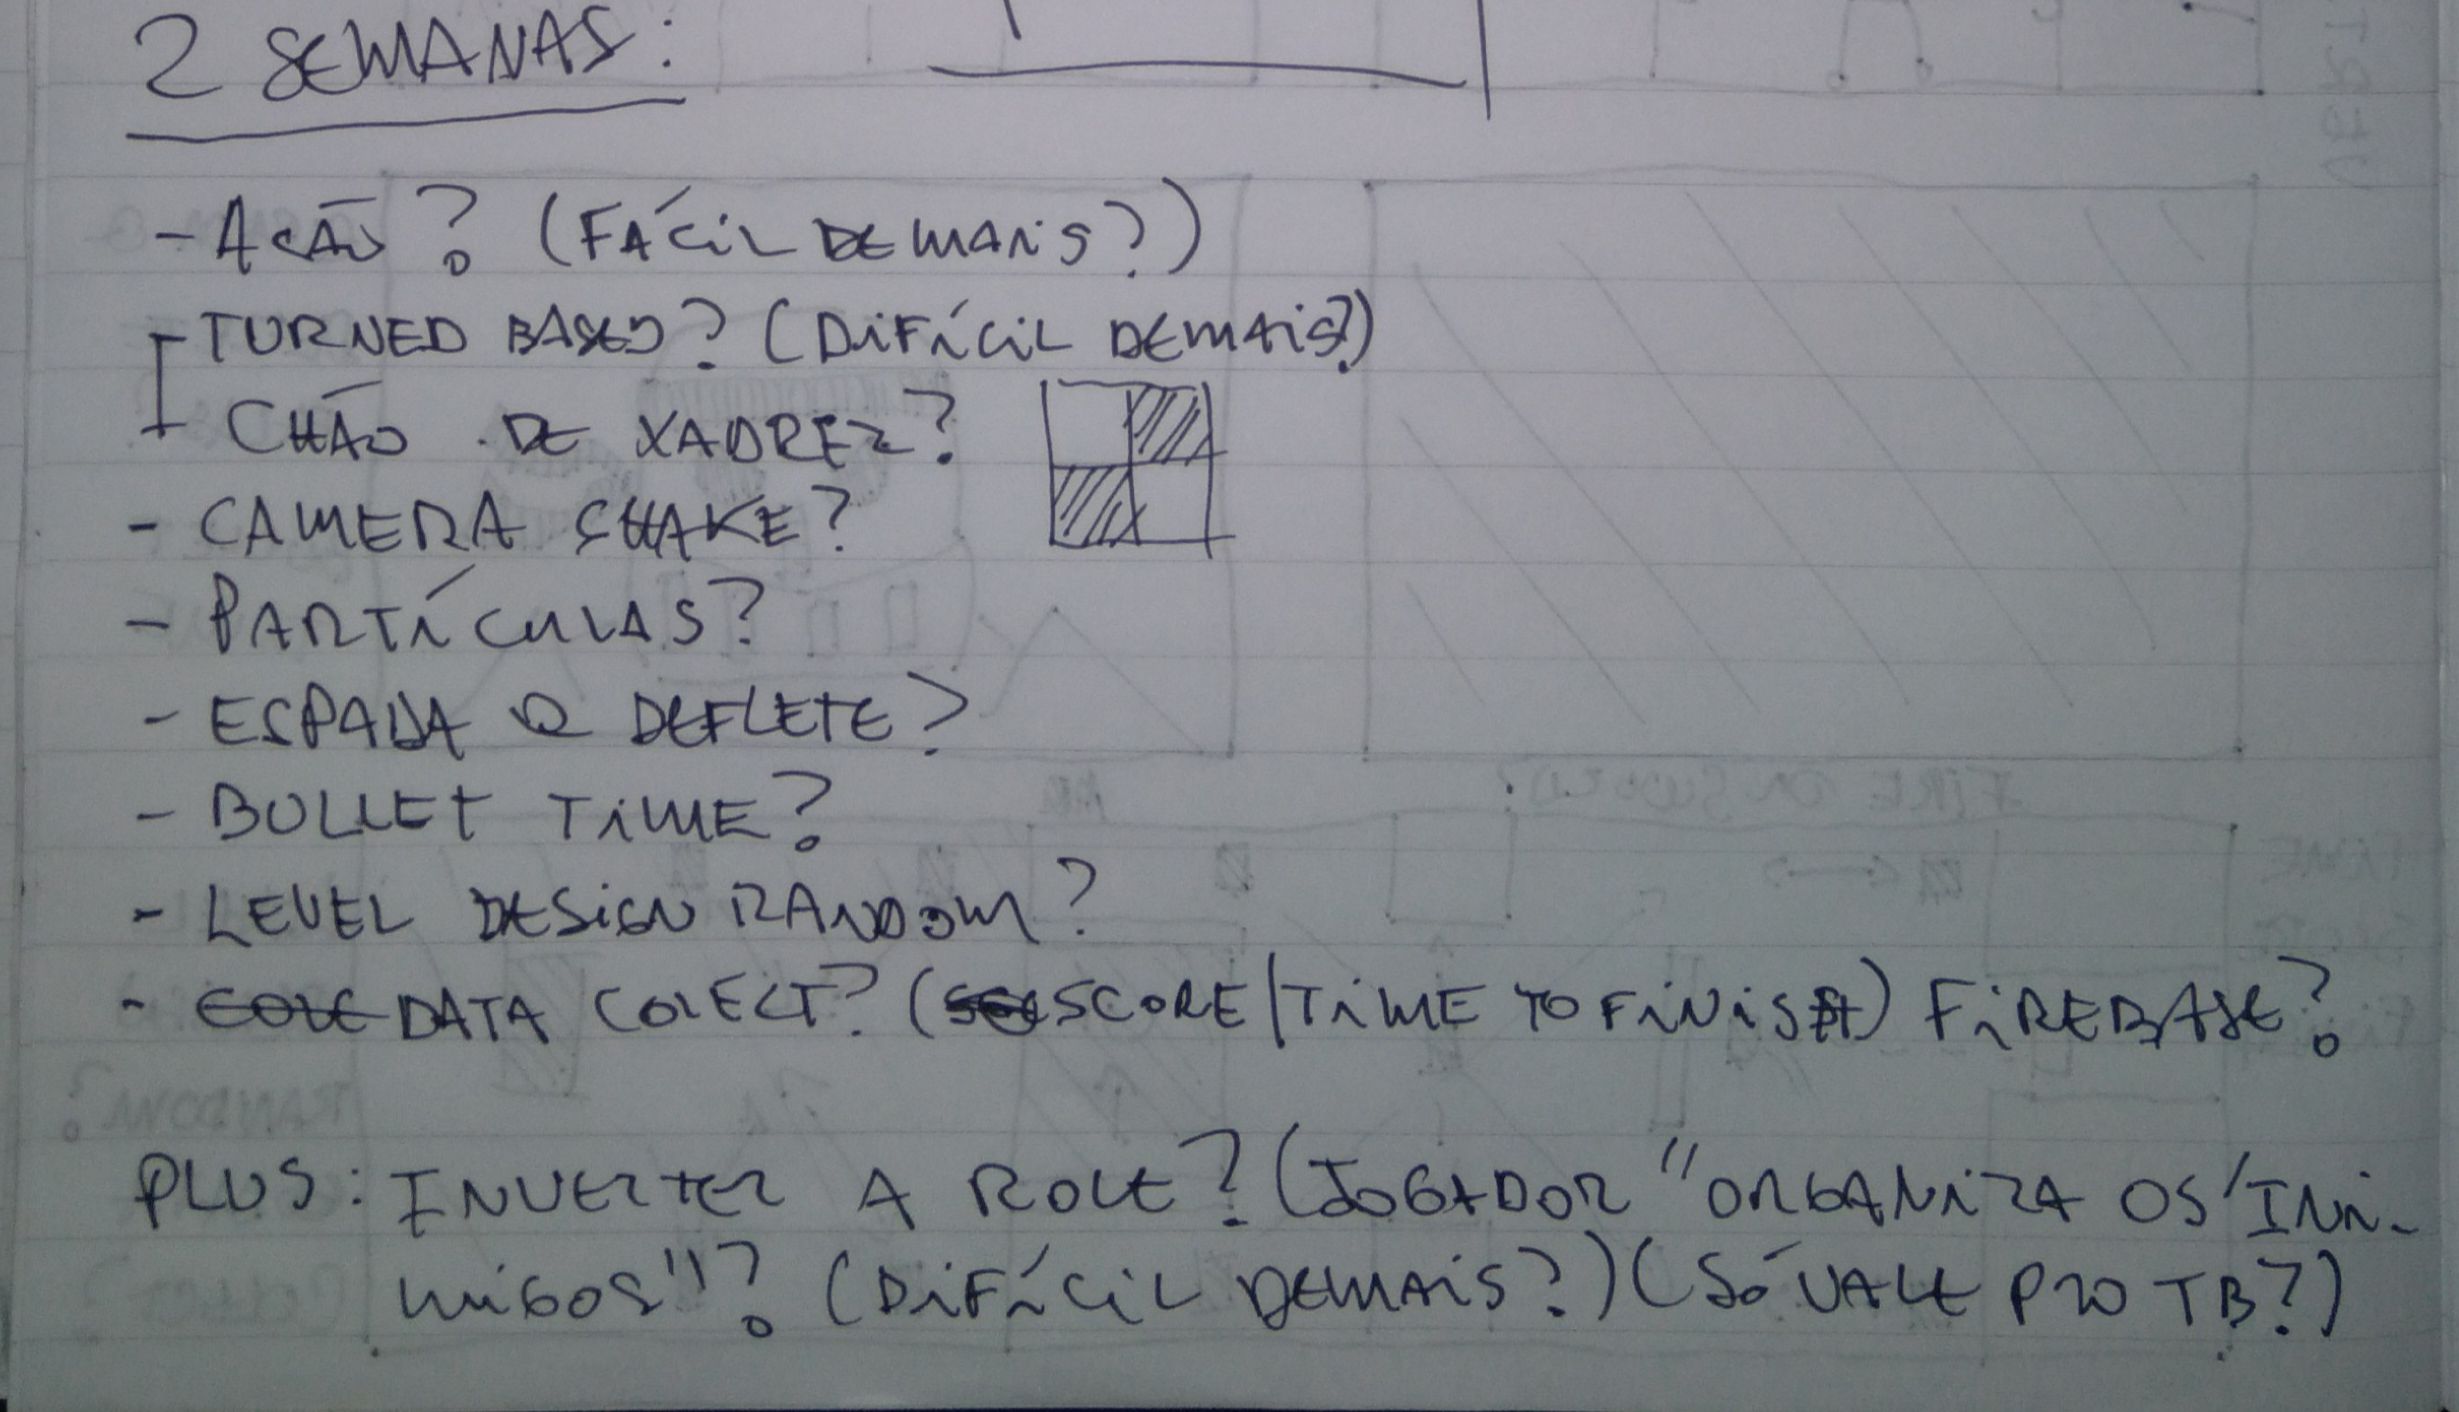 2 SEMANAS:
- AÇÃO? (FÁCIL DEMAIS?)
- TURNED BASED? (DIFÍCIL DEMAIS?)
CHÃO DE XADREZ?
- CAMERA SHAKE?
- PARTÍCULAS?
- ESPADA Q DEFLETE?
- BULLET TIME?
- LEVEL DESIGN RANDOM?
- DATA COLECT? (SCORE/TIME TO FINISH) FIREBASE?
PLUS: INVERTER A ROLE? (JOGADOR "ORGANIZA OS INI-
MIGOS"? (DIFÍCIL DEMAIS?) (SÓ VALE PRO TB?)